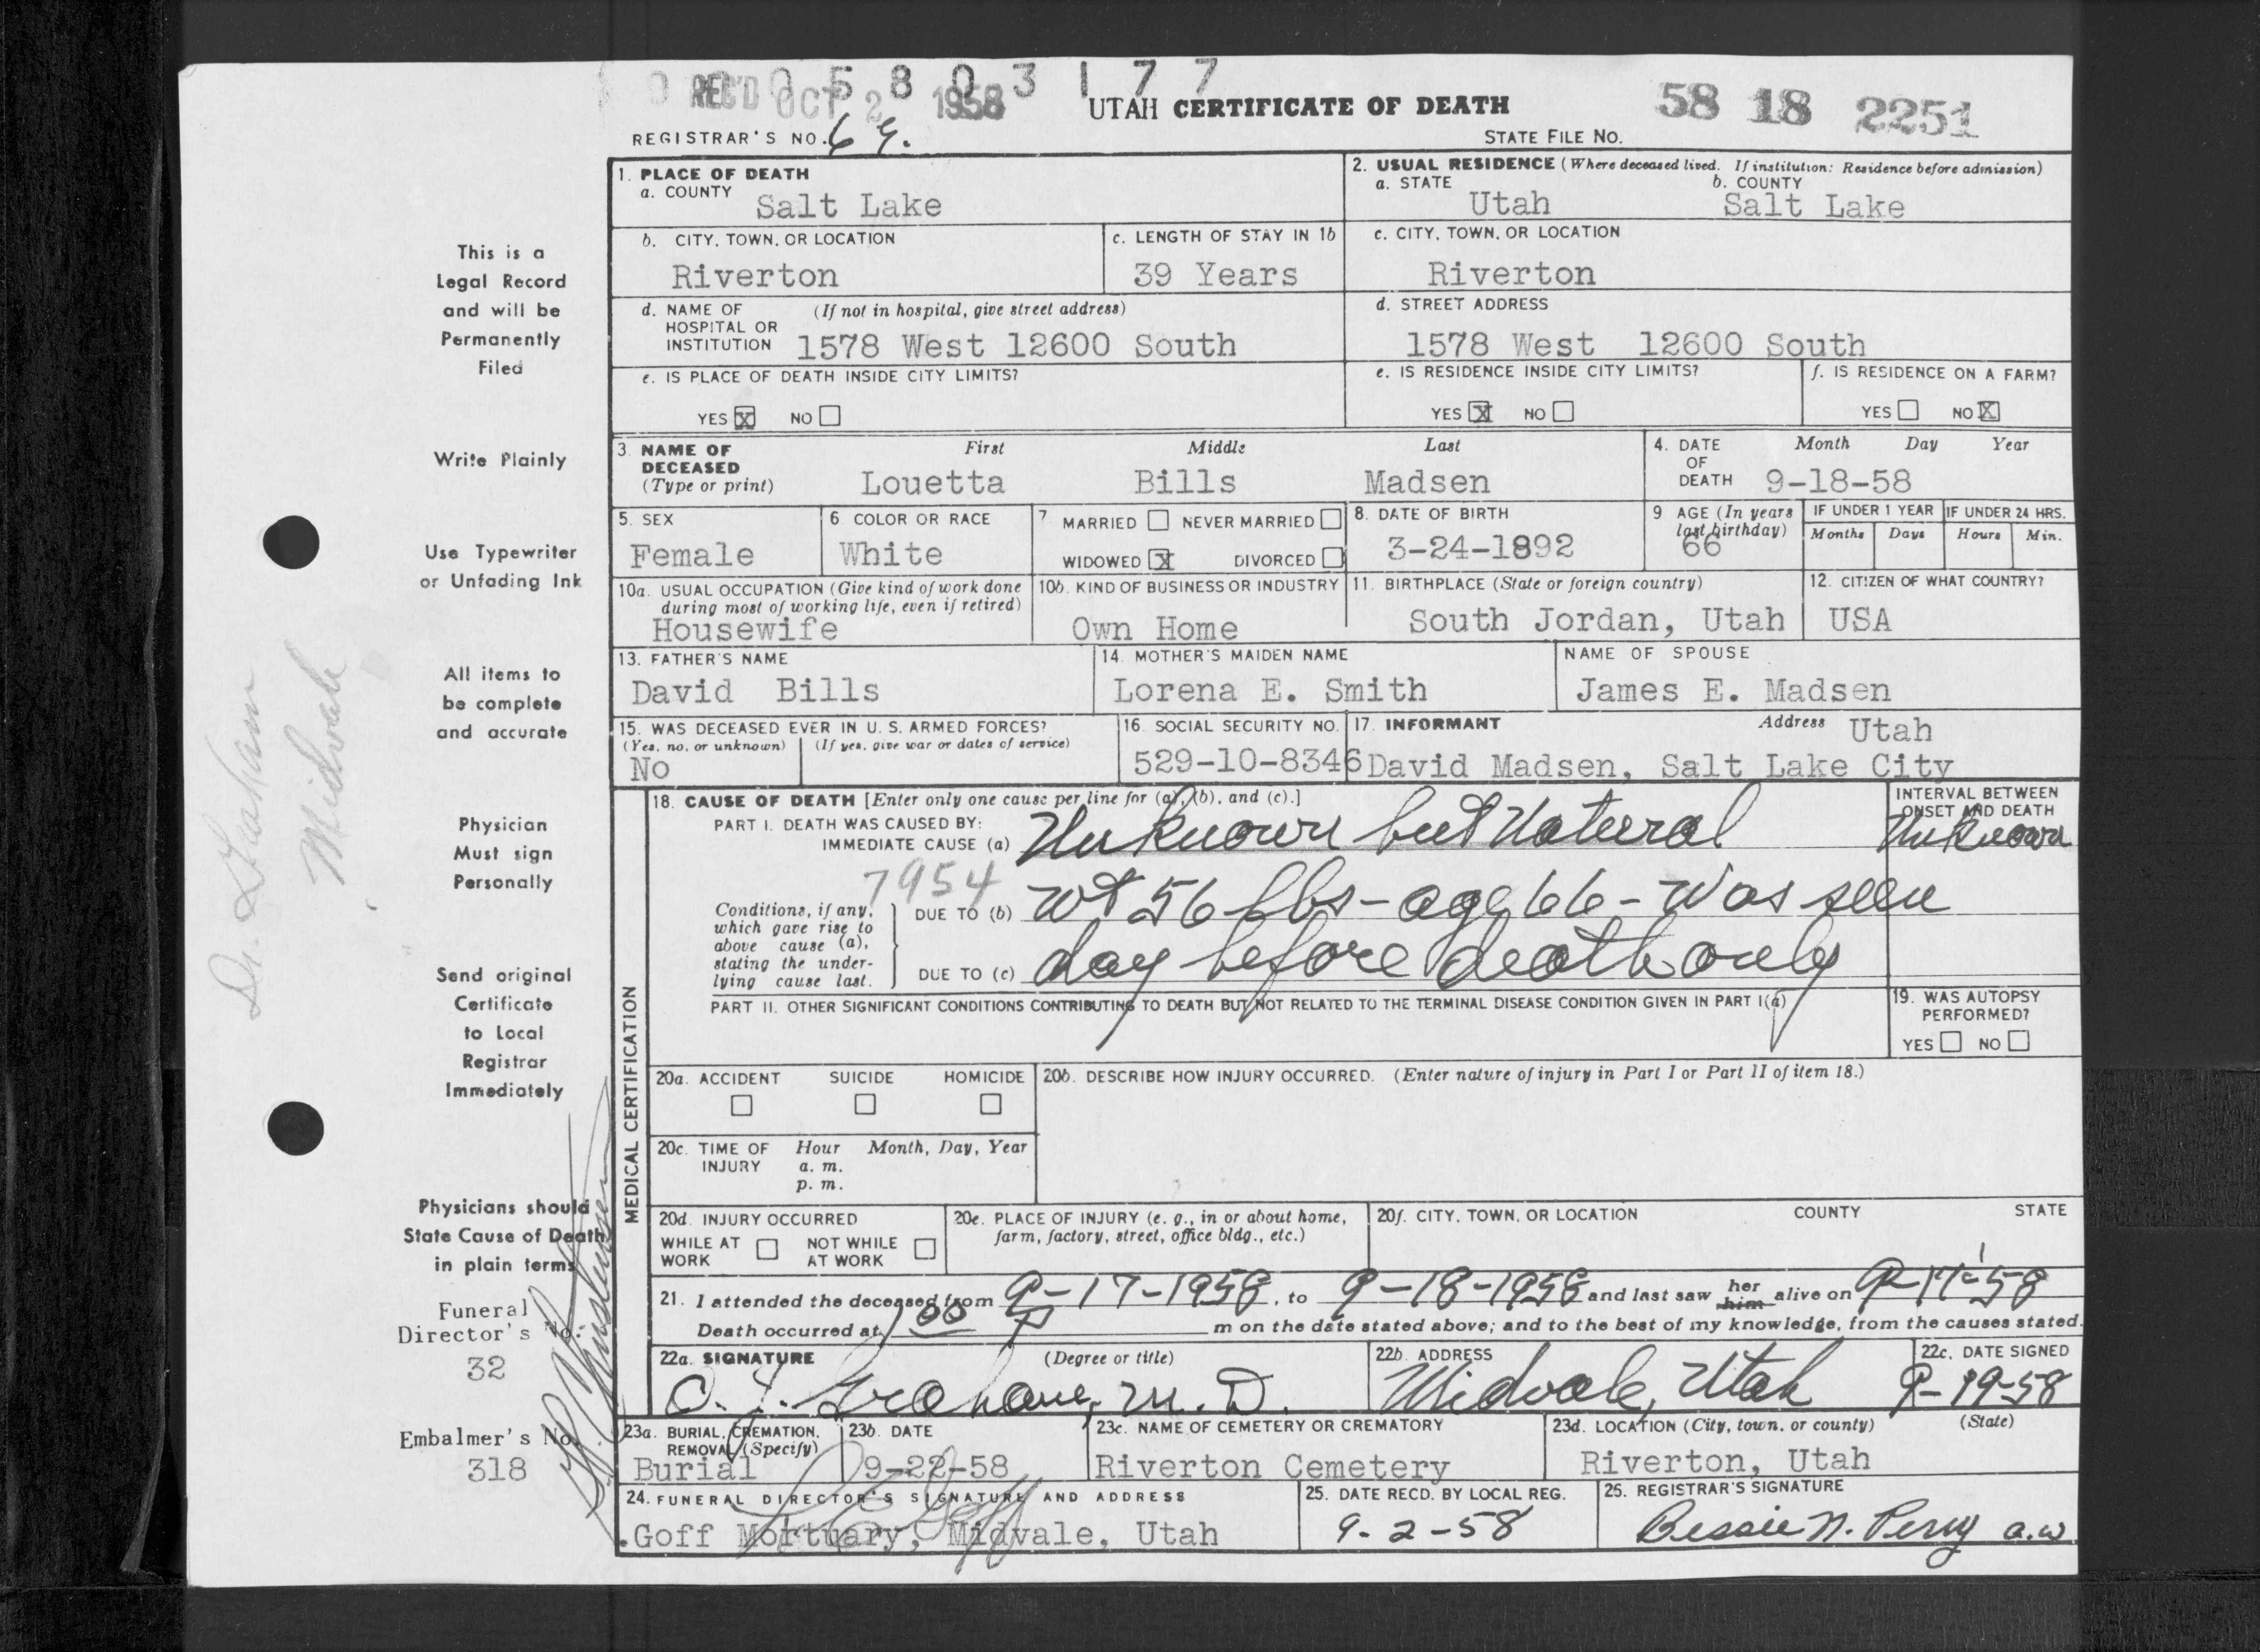 0 0 0 5 8 0 3 1 7 7
REC'D OCT 2 1958
UTAH CERTIFICATE OF DEATH
58 18 2251
REGISTRAR'S NO. 69.
STATE FILE NO.
1. PLACE OF DEATH
a. COUNTY Salt Lake
2. USUAL RESIDENCE (Where deceased lived. If institution: Residence before admission)
a. STATE Utah b. COUNTY Salt Lake
b. CITY, TOWN, OR LOCATION Riverton
c. LENGTH OF STAY IN 1b 39 Years
c. CITY, TOWN, OR LOCATION Riverton
d. NAME OF HOSPITAL OR INSTITUTION (If not in hospital, give street address) 1578 West 12600 South
d. STREET ADDRESS 1578 West 12600 South
e. IS PLACE OF DEATH INSIDE CITY LIMITS?
YES X NO
e. IS RESIDENCE INSIDE CITY LIMITS?
YES X NO
f. IS RESIDENCE ON A FARM?
YES NO X
3. NAME OF DECEASED (Type or print)
First Middle Last
Louetta Bills Madsen
4. DATE OF DEATH Month Day Year
9-18-58
5. SEX Female
6. COLOR OR RACE White
7. MARRIED NEVER MARRIED
WIDOWED X DIVORCED
8. DATE OF BIRTH 3-24-1892
9 AGE (In years last birthday) 66
IF UNDER 1 YEAR Months Days
IF UNDER 24 HRS. Hours Min.
10a. USUAL OCCUPATION (Give kind of work done during most of working life, even if retired)
Housewife
10b. KIND OF BUSINESS OR INDUSTRY
Own Home
11. BIRTHPLACE (State or foreign country)
South Jordan, Utah
12. CITIZEN OF WHAT COUNTRY?
USA
13. FATHER'S NAME
David Bills
14. MOTHER'S MAIDEN NAME
Lorena E. Smith
NAME OF SPOUSE
James E. Madsen
15. WAS DECEASED EVER IN U. S. ARMED FORCES?
(Yes, no, or unknown) (If yes, give war or dates of service)
No
16. SOCIAL SECURITY NO.
529-10-8346
17. INFORMANT Address Utah
David Madsen, Salt Lake City
MEDICAL CERTIFICATION
18. CAUSE OF DEATH [Enter only one cause per line for (a), (b), and (c).]
PART I. DEATH WAS CAUSED BY:
IMMEDIATE CAUSE (a) Unknown but Natural
INTERVAL BETWEEN ONSET AND DEATH
Unknown
7954
Conditions, if any, which gave rise to above cause (a), stating the underlying cause last.
DUE TO (b) wt 56 lbs - age 66 - Was seen
DUE TO (c) day before death only
PART II. OTHER SIGNIFICANT CONDITIONS CONTRIBUTING TO DEATH BUT NOT RELATED TO THE TERMINAL DISEASE CONDITION GIVEN IN PART I(a)
19. WAS AUTOPSY PERFORMED?
YES NO
20a. ACCIDENT SUICIDE HOMICIDE
20b. DESCRIBE HOW INJURY OCCURRED. (Enter nature of injury in Part I or Part II of item 18.)
20c. TIME OF INJURY Hour Month, Day, Year
a. m.
p. m.
20d. INJURY OCCURRED
WHILE AT WORK NOT WHILE AT WORK
20e. PLACE OF INJURY (e. g., in or about home, farm, factory, street, office bldg., etc.)
20f. CITY, TOWN, OR LOCATION COUNTY STATE
21. I attended the deceased from 9-17-1958, to 9-18-1958 and last saw her him alive on 9-17-58
Death occurred at 1 00 P m on the date stated above; and to the best of my knowledge, from the causes stated.
22a. SIGNATURE (Degree or title)
O. J. Graham, M. D.
22b. ADDRESS
Midvale, Utah
22c. DATE SIGNED
9-19-58
23a. BURIAL, CREMATION, REMOVAL (Specify)
Burial
23b. DATE
9-22-58
23c. NAME OF CEMETERY OR CREMATORY
Riverton Cemetery
23d. LOCATION (City, town, or county) (State)
Riverton, Utah
24. FUNERAL DIRECTOR'S SIGNATURE AND ADDRESS
Goff Mortuary, Midvale, Utah
25. DATE RECD. BY LOCAL REG.
9-2-58
25. REGISTRAR'S SIGNATURE
Bessie N. Perry a.w
This is a
Legal Record
and will be
Permanently
Filed
Write Plainly
Use Typewriter
or Unfading Ink
All items to
be complete
and accurate
Physician
Must sign
Personally
Send original
Certificate
to Local
Registrar
Immediately
Physicians should
State Cause of Death
in plain terms
Funeral
Director's No.
32
Embalmer's No.
318
Dr. Graham
Midvale